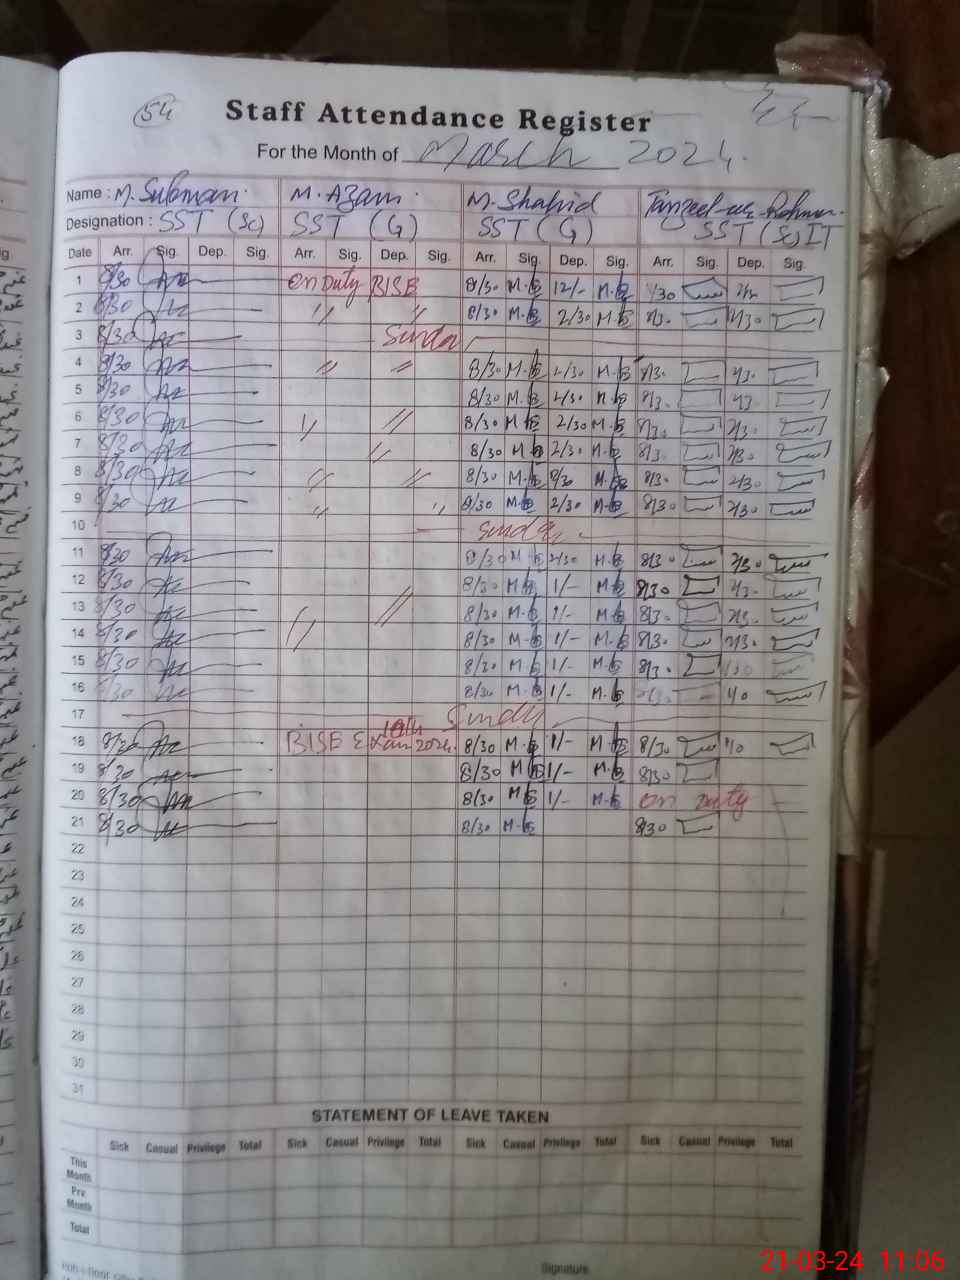 54
Staff Attendance Register
For the Month of March 2024.
Name : M. Suleman. M. Azam. M. Shahid Tanzeel-ur-Rehman.
Designation : SST (Sc) SST (G) SST (G) SST (Sc) IT
Date Arr. Sig. Dep. Sig. Arr. Sig. Dep. Sig. Arr. Sig. Dep. Sig. Arr. Sig. Dep. Sig.
1 8/30 On Duty BISE 8/30 M.S 12/- M.S 8/30
2 8/30 " " 8/30 M.S 2/30 M.S 8/30 2/30
3 8/30 Sunday
4 8/30 " " 8/30 M.S 2/30 M.S 8/30 2/30
5 8/30 8/30 M.S 2/30 M.S 8/30 2/30
6 8/30 " " 8/30 M.S 2/30 M.S 8/30 2/30
7 8/30 " 8/30 M.S 2/30 M.S 8/30 2/30
8 8/30 " " 8/30 M.S 2/30 M.S 8/30 2/30
9 8/30 " " 8/30 M.S 2/30 M.S 8/30 2/30
10 Sunday
11 8/30 8/30 M.S 2/30 M.S 8/30 2/30
12 8/30 8/30 M.S 1/- M.S 8/30 2/30
13 8/30 " " 8/30 M.S 1/- M.S 8/30 2/30
14 8/30 8/30 M.S 1/- M.S 8/30 2/30
15 8/30 8/30 M.S 1/- M.S 8/30
16 8/30 8/30 M.S 1/- M.S
17 Sunday
18 8/30 BISE Exam 10th 2024. 8/30 M.S 1/- M.S 8/30
19 8/30 8/30 M.S 1/- M.S 8/30
20 8/30 8/30 M.S 1/- M.S On Duty
21 8/30 8/30 M.S 8/30
22
23
24
25
26
27
28
29
30
31
STATEMENT OF LEAVE TAKEN
Sick Casual Privilege Total Sick Casual Privilege Total Sick Casual Privilege Total Sick Casual Privilege Total
This Month
Pre Month
Total
Signature
21-03-24 11:06